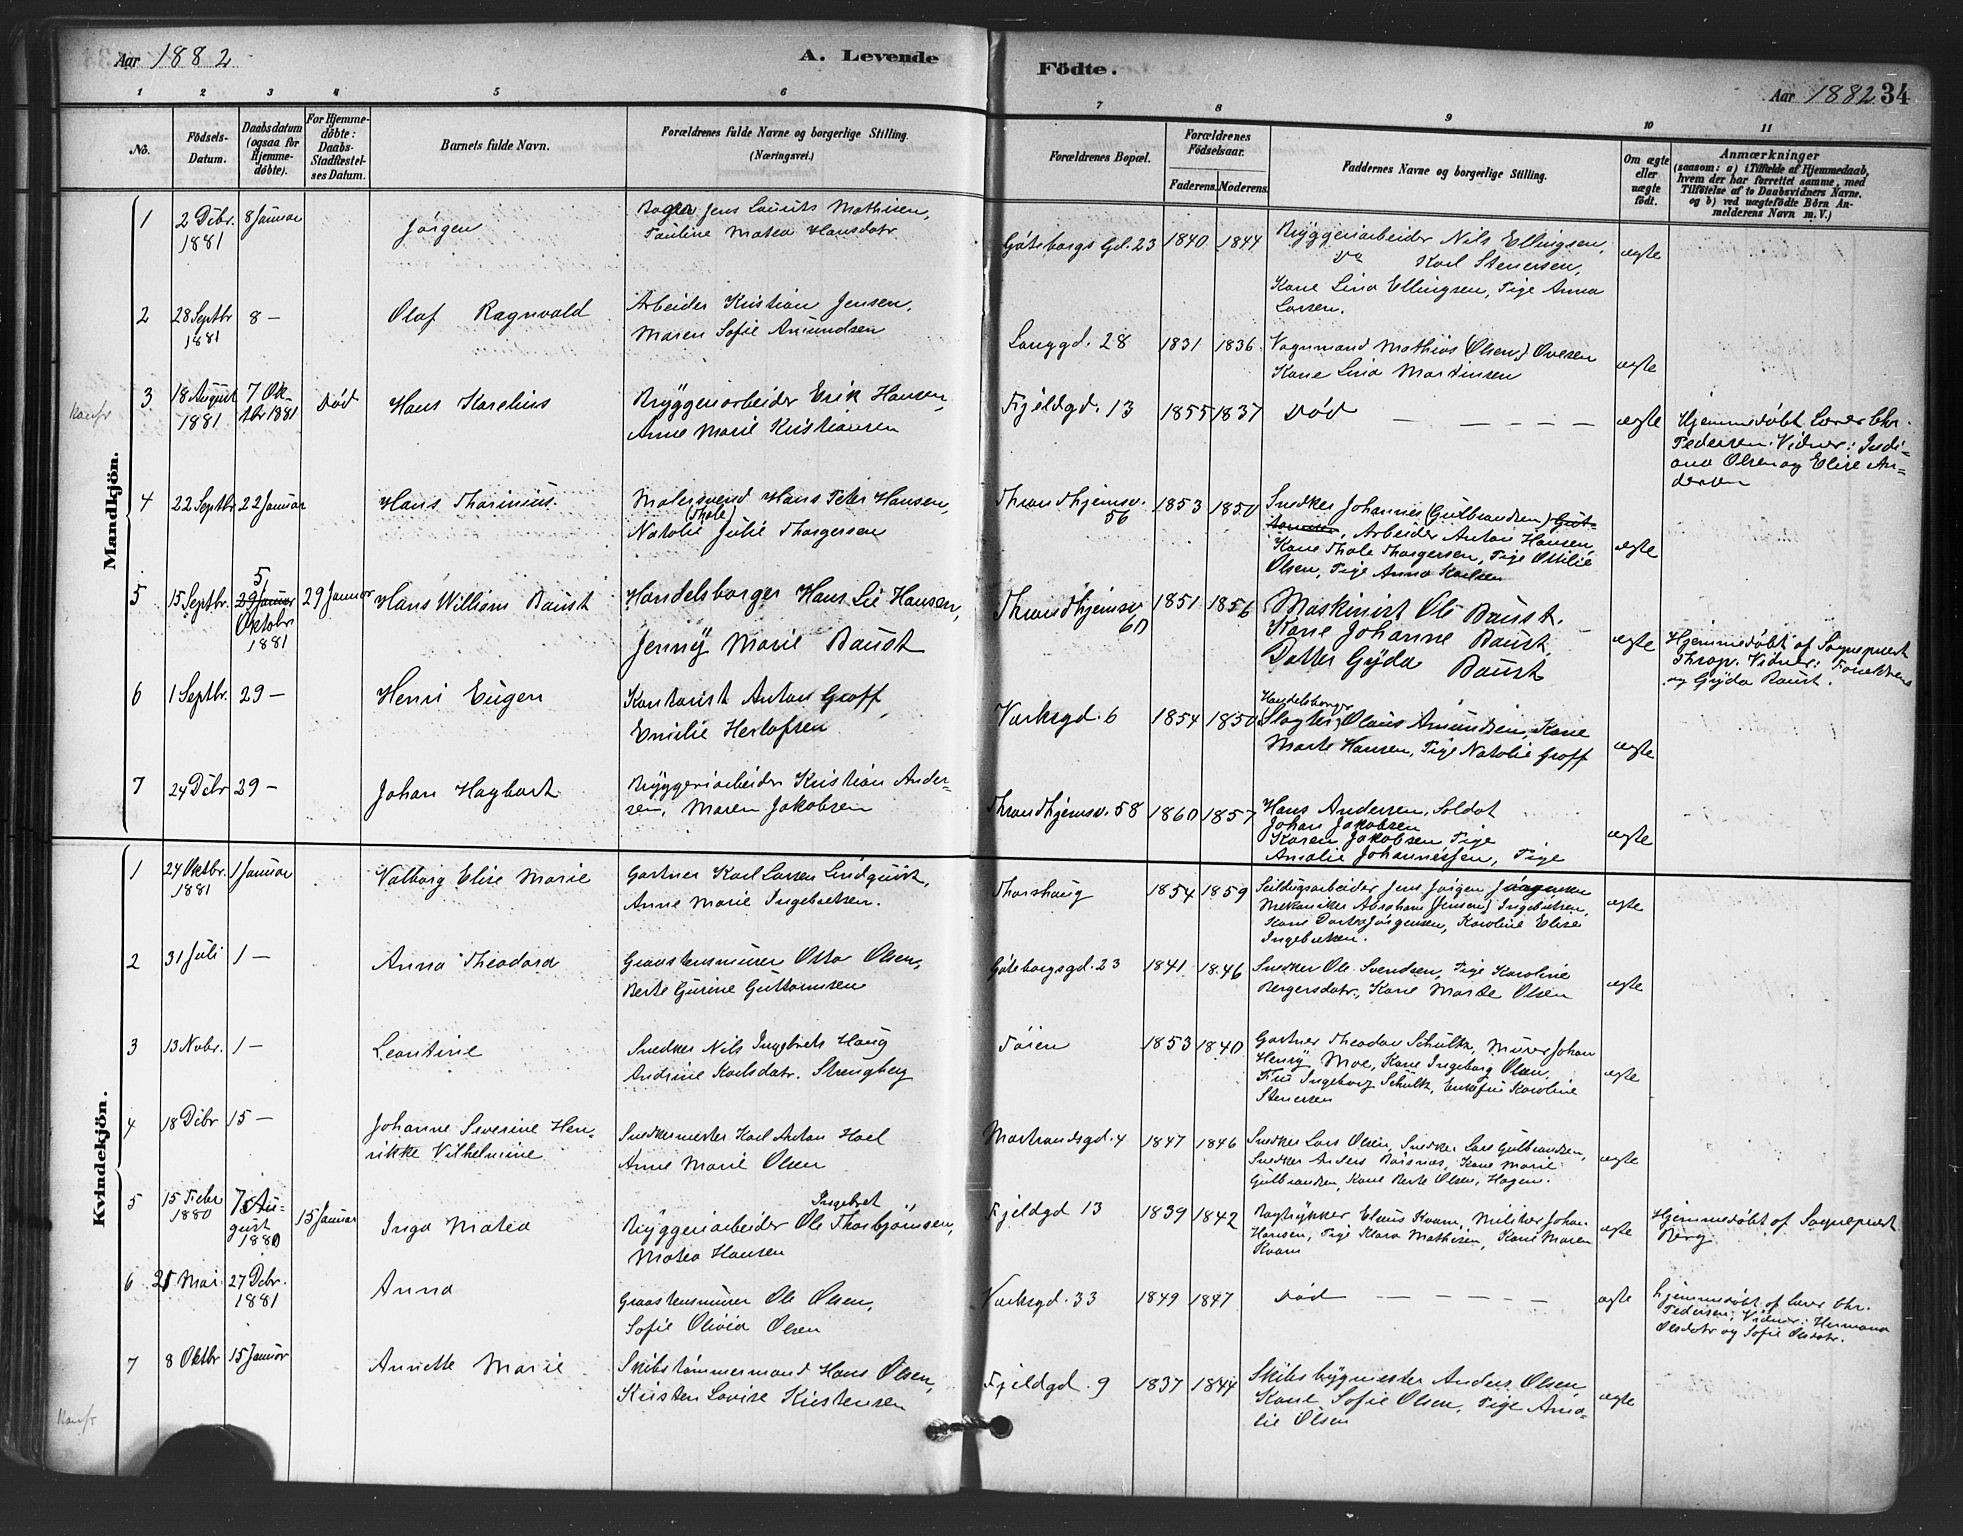 Aar 1882
A. Levende
Födte.
Aar 1882 34
1 2 3 4 5 6 7 8 9 10 11
No.
Födsels-
Datum.
Daabsdatum
(ogsaa for
Hjemme-
döbte).
For Hjemme-
döbte:
Daabs-
Stadfæstel-
ses Datum.
Barnets fulde Navn.
Forældrenes fulde Navne og borgerlige Stilling.
(Næringsvei.)
Forældrenes Bopæl.
Forældrenes
Födselsaar.
Faderens. Moderens.
Faddernes Navne og borgerlige Stilling.
Om ægte
eller
uægte
födt.
Anmærkninger
(saasom: a) i Tilfælde af Hjemmedaab,
hvem der har forrettet samme, med
Tilföielse af to Daabsvidners Navne.
og b) ved uægtefödte Börn An-
melderens Navn m. V.)
Mandkjön.
1 2 Dcbr. 1881 8 Januar
Jörgen
Bager Jens Laurits Mathisen,
Pauline Matea Hansdatr
Göteborgs Gd. 23 1840 1844
Bryggeriarbeider Nils Ellingsen,
Do Karl Stenersen,
Kone Lina Ellingsen, Pige Anna
Larsen.
ægte
2 28 Septbr 1881 8 —
Olaf Ragnvald
Arbeider Kristian Jensen,
Maren Sofie Amundsen
Langgd. 28 1831 1836
Vognmand Mathias (Olsen) Ovesen
Kone Lina Martinsen
ægte
Konfr
3 18 August 1881 7 Ok-
tbr 1881 Död
Hans Karelius
Bryggeriarbeider Erik Hansen,
Anne Marie Kristiansen
Fjeldgd. 13 1855 1837
Död — — — — —
ægte
Hjemmedöbt Lærer Chr.
Pedersen. Vidner: Indi-
ana Olsen og Elise An-
dersen
4 22 Septbr 22 Januar
Hans Thorinius.
Malersvend Hans Peter Hansen,
(Thale)
Natalie Julie Thorgersen
Throndhjemsv. 56 1853 1850
Snedker Johannes (Gulbrandsen) Gut-
tormsen, Arbeider Anton Hansen,
Kone Thale Thorgersen, Pige Ottilie
Olsen, Pige Anna Karlsen
ægte
5 15 Septbr. 5
29 Januar
Oktobr
1881 29 Januar
Hans William Baust
Handelsborger Hans Lie Hansen,
Jenny Marie Baust
Throndhjemsv. 60 1851 1856
Maskinist Ole Baust.
Kone Johanne Baust,
Datter Gyda Baust
ægte
Hjemmedöbt af Sognepræst
Thrap. Vidner: Forældrene
og Gyda Baust.
6 1 Septbr. 29 —
Henri Eugen
Kontorist Anton Groff,
Emilie Herlofsen
Verksgd. 6 1854 1850
Handelsborger
(Slagter) Olaus Amundsen, Kone
Marte Hansen, Pige Natalie Groff
ægte
7 24 Dcbr 29 —
Johan Hagbart
Bryggeriarbeider Kristian Ander-
sen, Maren Jakobsen
Throndhjemsv. 58 1860 1857
Hans Andersen, Soldat
Johan Jakobsen
Karen Jakobsen, Pige
Amalie Johannessen, Pige
ægte
Kvindekjön.
1 24 Oktbr. 1881 1 Januar
Valborg Elise Marie
Gartner Karl Larsen Lindquist,
Anne Marie Ingebretsen.
Thorshaug 1854 1859
Seildugsarbeider Jens Jörgen Jörgensen
Mekaniker Abraham (Jensen) Ingebretsen,
Kone Dorte Jörgensen, Karoline Elise
Ingebretsen.
ægte
2 31 Juli 1 —
Anna Theodora
Graastensmurer Otto Olsen,
Berte Gurine Guttormsen
Göteborgsgd. 23 1841 1846
Snedker Ole Svendsen, Pige Karoline
Bergersdatr., Kone Marte Olsen
ægte
3 13 Nobr. 1 —
Leontine
Snedker Nils Ingebreth Haug
Andrine Karlsdatr. Strengberg
Töien 1853 1840
Gartner Theodor Schultz, Murer Johan
Henry Moe, Kone Ingeborg Olsen,
Fru Ingeborg Schultz, Enkefru Karoline
Stenersen
ægte
4 18 Dcbr 15 —
Johanne Severine Hen-
rikke Vilhelmine
Snedkermester Karl Anton Hoel
Anne Marie Olsen
Marstrandsgd. 4 1847 1846
Snedker Lars Olsen, Snedker Lars Gulbrandsen,
Snedker Anders Börsnæs, Kone Marie
Gulbrandsen, Kone Berte Olsen, Hagen.
ægte
5 15 Febr 1880 7 Au-
gust
1880 15 Januar
Inga Matea
Ingebret
Bryggeriarbeider Ole Thorbjörnsen,
Matea Hansen
Fjeldgd 13 1839 1842
Bogtrykker Elaus Kvam, Militær Johan
Hansen, Pige Klara Mathisen, Kone Maren
Kvam
ægte
Hjemmedöbt af Sognepræst
Berg
6 21 Mai 27 Dcbr. 1881
Anna
Graastensmurer Ole Olsen,
Sofie Olivia Olsen
Verksgd. 33 1849 1847
Död — — — — —
ægte
Hjemmedöbt af Lærer Chr.
Pedersen; Vidner: Hermana
Olsdatr og Sofie Olsdatr.
7 8 Oktbr 15 Januar
Annette Marie
Skibstömmermand Hans Olsen,
Kristen Lovise Kristensen
Fjeldgd 9 1837 1844
Skibsbygmester Anders Olsen
Kone Sofie Olsen, Pige Ama-
lie Olsen
ægte
Konfr